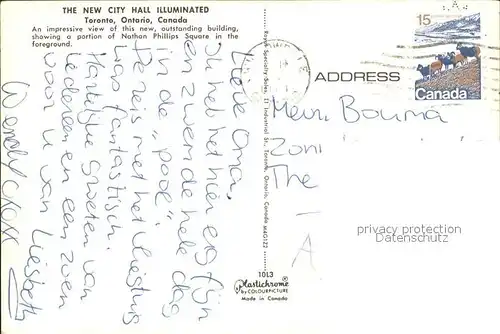 THE NEW CITY HALL ILLUMINATED
Toronto, Ontario, Canada
An impressive view of this new, outstanding building,
showing a portion of Nathan Phillips Square in the
foreground.
Lieve Oma,
Ik heb het hier erg fijn
en zwem de hele dag
in de "pool".
De reis met het vliegtuig
was fantastisch.
Hartelijke groeten van
iedereen en een zoen
voor u van Liesbeth
Royal Specialty Sales, 21 Industrial St., Toronto, Ontario, Canada M4G1Z2
101.3
Plastichrome®
By COLOURPICTURE
Made in Canada
15
Canada
ADDRESS
Mevr. Bouma
The
A
privacy protection
Datenschutz